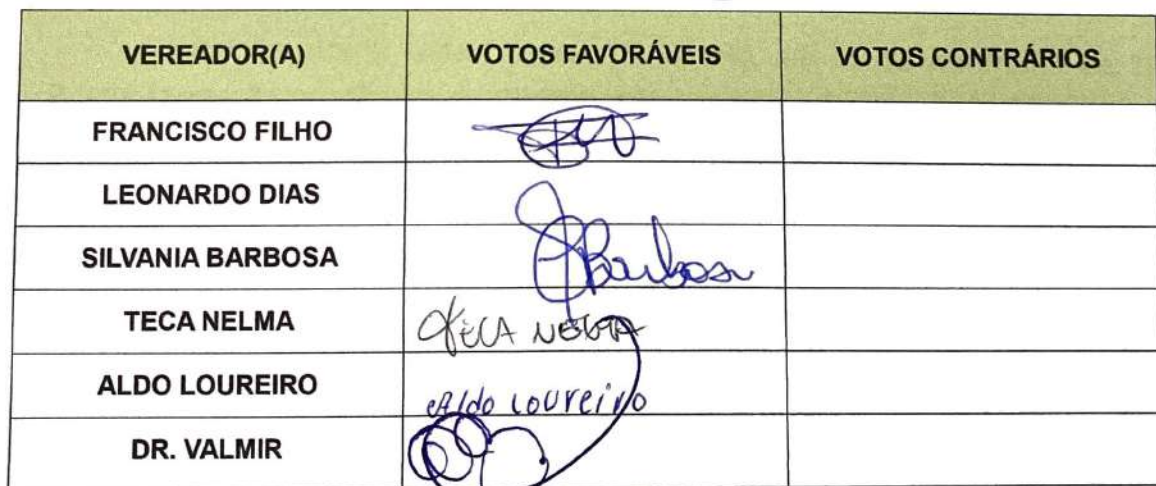 VEREADOR(A) VOTOS FAVORÁVEIS VOTOS CONTRÁRIOS
FRANCISCO FILHO
LEONARDO DIAS
SILVANIA BARBOSA Barbosa
TECA NELMA TECA NELMA
ALDO LOUREIRO Aldo Loureiro
DR. VALMIR